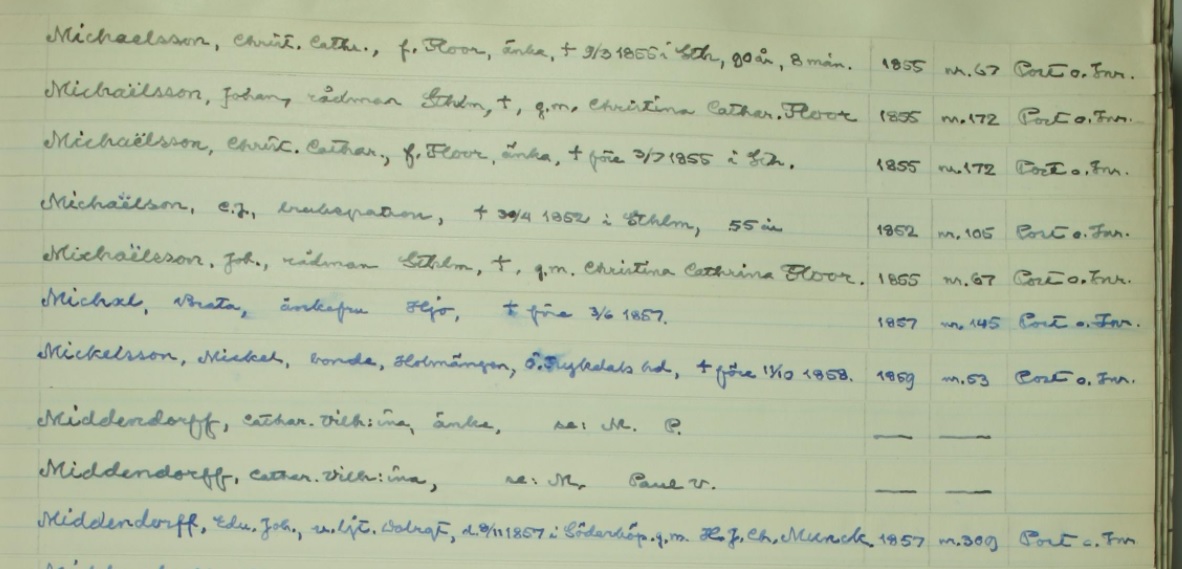 Michaelsson, Christ. Cath., f. Floor, änka, † 9/3 1855 i Sth, 90 år, 8 mån. 1855 nr. 67 Post o. Inr.
Michaëlsson, Johan, rådman Sthlm, †, g.m. Christina Cathar. Floor 1855 nr. 172 Post o. Inr.
Michaëlsson, Christ. Cathar., f. Floor, änka, † före 3/7 1855 i Sth. 1855 nr. 172 Post o. Inr.
Michaëlson, C.J., brukspatron, † 30/4 1852 i Sthlm, 55 år 1852 nr. 105 Post o. Inr.
Michaëlsson, Joh., rådman Sthlm, †, g.m. Christina Cathrina Floor. 1855 nr. 67 Post o. Inr.
Michal, Beata, änkefru Hjo, † före 3/6 1857. 1857 nr. 145 Post o. Inr.
Mickelsson, Mickel, bonde, Holmängen, hd, † före 11/10 1858. 1859 nr. 53 Post o. Inr.
Middendorff, Cathar. Vilh:ina, änka, se: M. P. — —
Middendorff, Cathar. Vilh:ina, se: M, Paul V. — —
Middendorff, Edu. Joh., u.ljt. d. 8/11 1857 i Söderköp. g.m. H. J. Ch. Munck. 1857 nr. 309 Post o. Inr